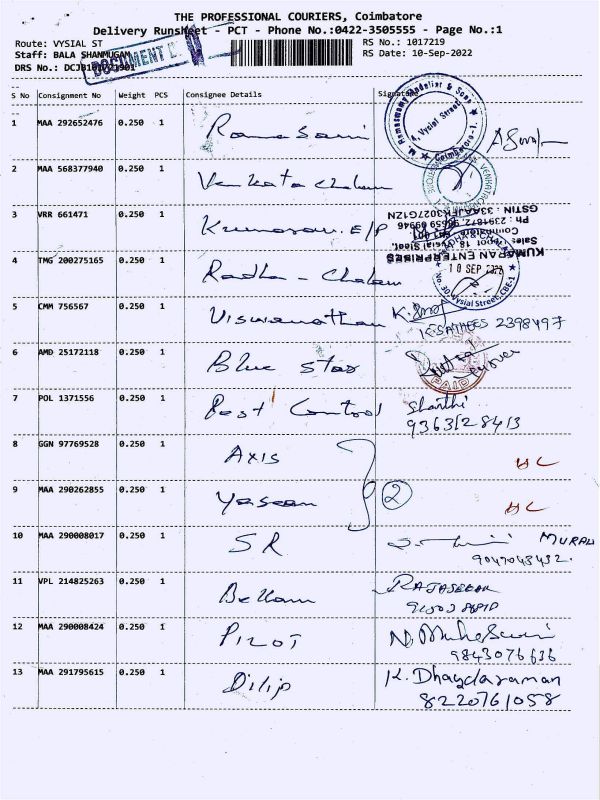 THE PROFESSIONAL COURIERS, Coimbatore
Delivery Runsheet - PCT - Phone No.:0422-3505555 - Page No.:1
Route: VYSIAL ST
RS No.: 1017219
Staff: BALA SHANMUGAM
RS Date: 10-Sep-2022
DRS No.:
DOCUMENT
S No Consignment No Weight PCS Consignee Details Signature
1 MAA 292652476 0.250 1 Ramasami
M. Ramaswamy Mudaliar & Sons
4, Vysial Street
Coimbatore-1
2 MAA 568377940 0.250 1 Venkata Chalam
3 VRR 661471 0.250 1 Kumaran E/P
KUMARAN ENTERPRISES
Coimbatore
GSTIN : 33AAJFK3027G1ZN
4 TMG 200275165 0.250 1 Radha - Chalam
10 SEP 2022
No. 30, Vysial Street, CBE-1
5 CMM 756567 0.250 1 Viswanathan
2398497
6 AMD 25172118 0.250 1 Blue star
PAID
7 POL 1371556 0.250 1 Pest Control Sharthi
9363128413
8 GGN 97769528 0.250 1 AXIS
9 MAA 290262855 0.250 1 Yaseen
2
10 MAA 290008017 0.250 1 SR MURALI
9047043432.
11 VPL 214825263 0.250 1 RAJASEKAR
12 MAA 290008424 0.250 1
9843076636
13 MAA 291795615 0.250 1 Dilip K. Dhaydaraman
8220761058